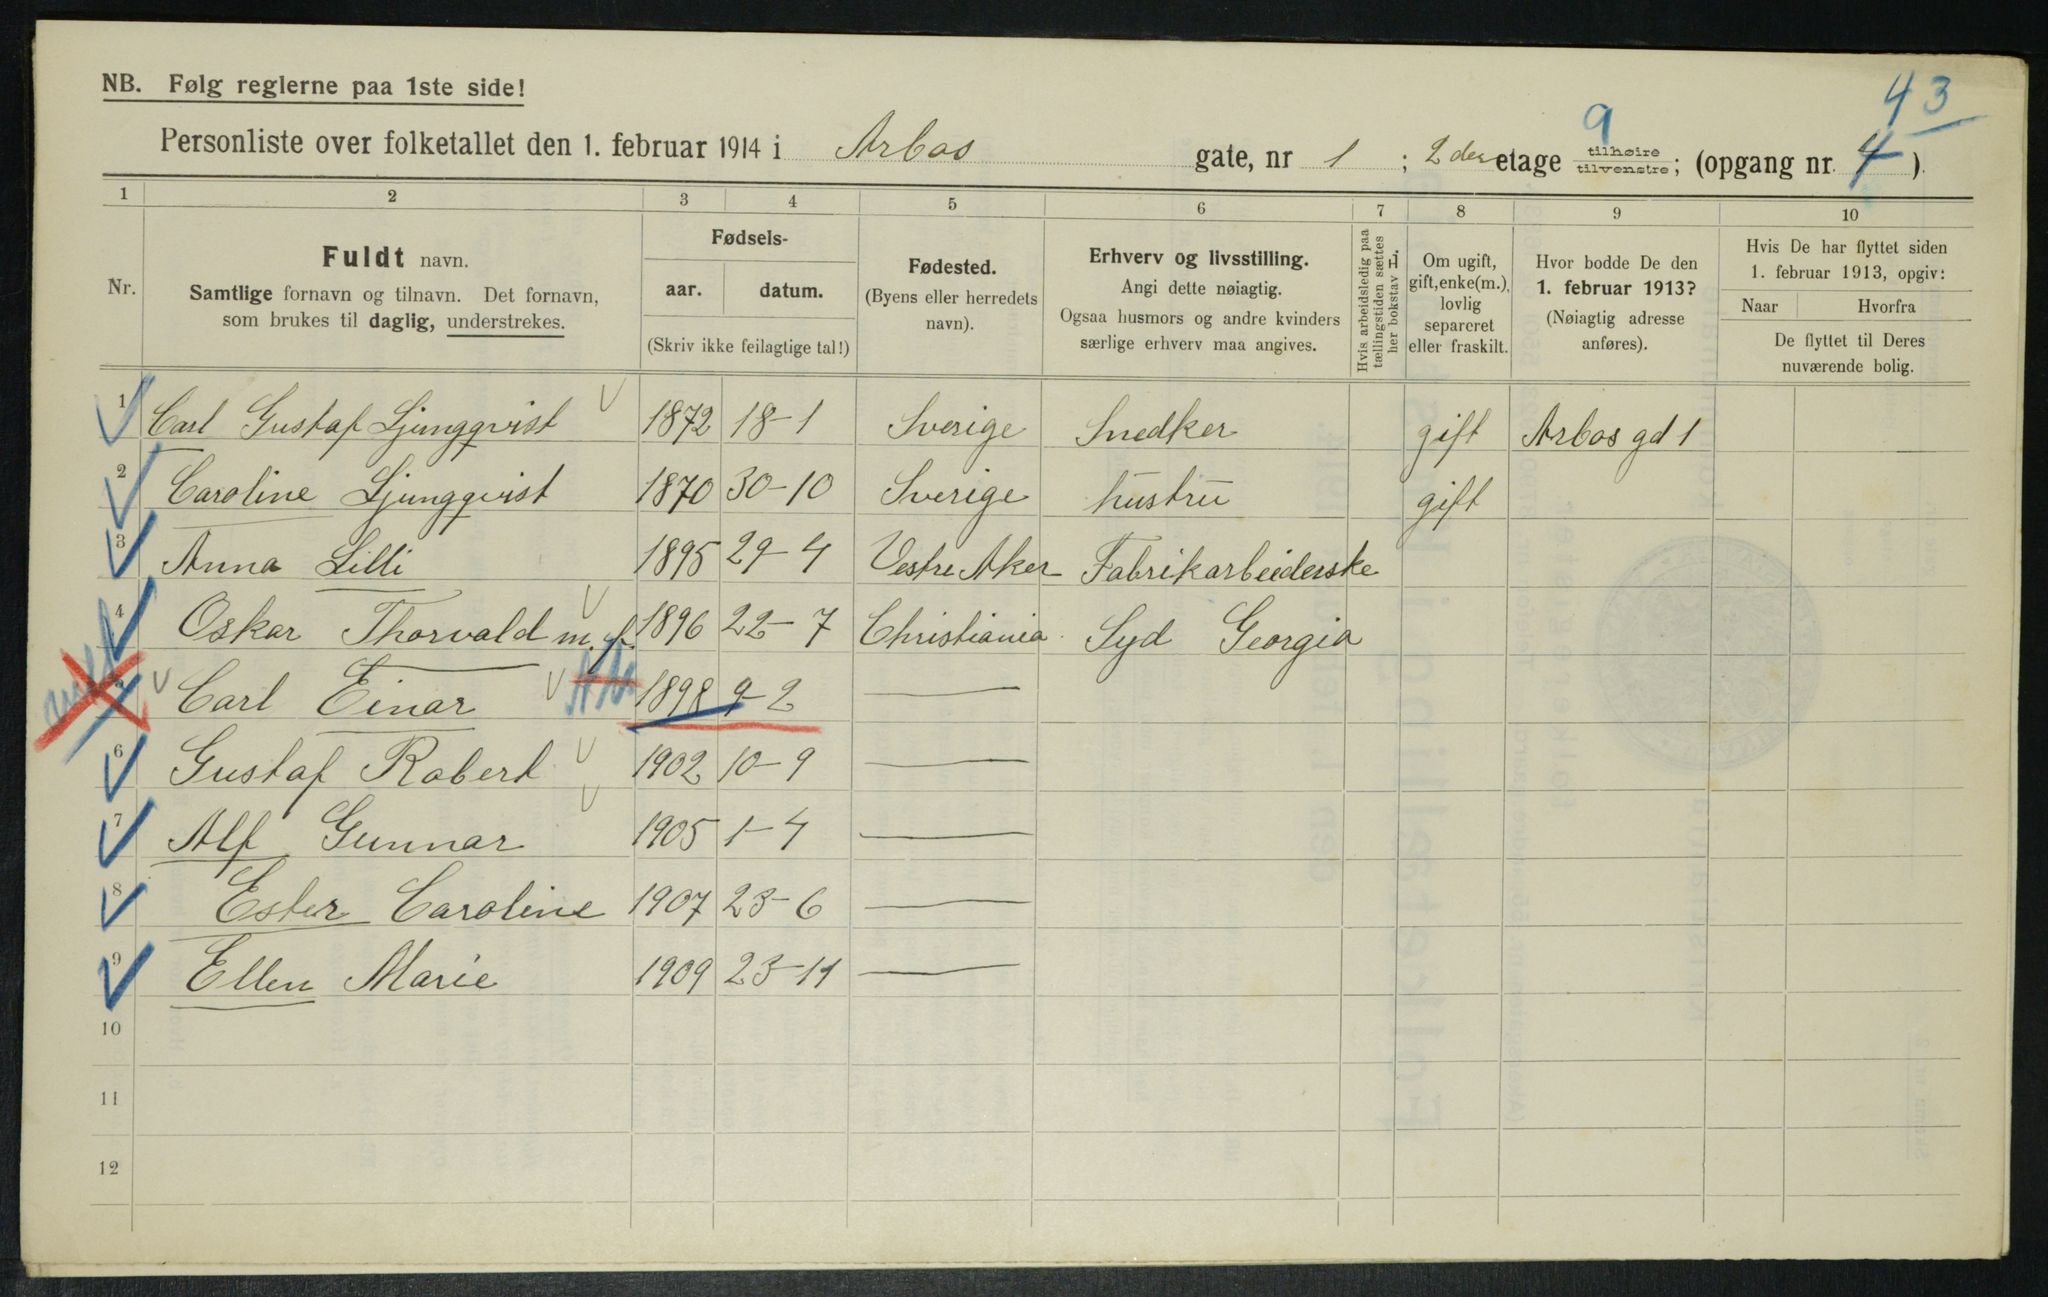 43
NB. Følg reglerne paa 1ste side!
Personliste over folketallet den 1. februar 1914 i Arbos gate, nr 1 ; 2den etage 9 tilhøire tilvenstre; (opgang nr. 4 ).
1 2 3 4 5 6 7 8 9 10
Nr. Fuldt navn. Samtlige fornavn og tilnavn. Det fornavn, som brukes til daglig, understrekes.
Fødsels- aar. datum. (Skriv ikke feilagtige tal!)
Fødested. (Byens eller herredets navn).
Erhverv og livsstilling. Angi dette nøiagtig. Ogsaa husmors og andre kvinders særlige erhverv maa angives.
Hvis arbeidsledig paa tællingstiden sættes her bokstav L.
Om ugift, gift, enke(m.), lovlig separeret eller fraskilt.
Hvor bodde De den 1. februar 1913? (Nøiagtig adresse anføres).
Hvis De har flyttet siden 1. februar 1913, opgiv: Naar Hvorfra De flyttet til Deres nuværende bolig.
1 Carl Gustaf Ljungqvist 1872 18-1 Sverige Snedker gift Arbos gd 1
2 Caroline Ljungqvist 1870 30-10 Sverige hustru gift
3 Anna Lilli 1895 29-4 Vestre Aker Fabrikarbeiderske
4 Oskar Thorvald m.f. 1896 22-7 Christiania Syd Georgia
5 Carl Einar 1898 9-2
6 Gustaf Robert 1902 10-9
7 Alf Gunnar 1905 1-4
8 Ester Caroline 1907 23-6
9 Ellen Marie 1909 23-11
10
11
12